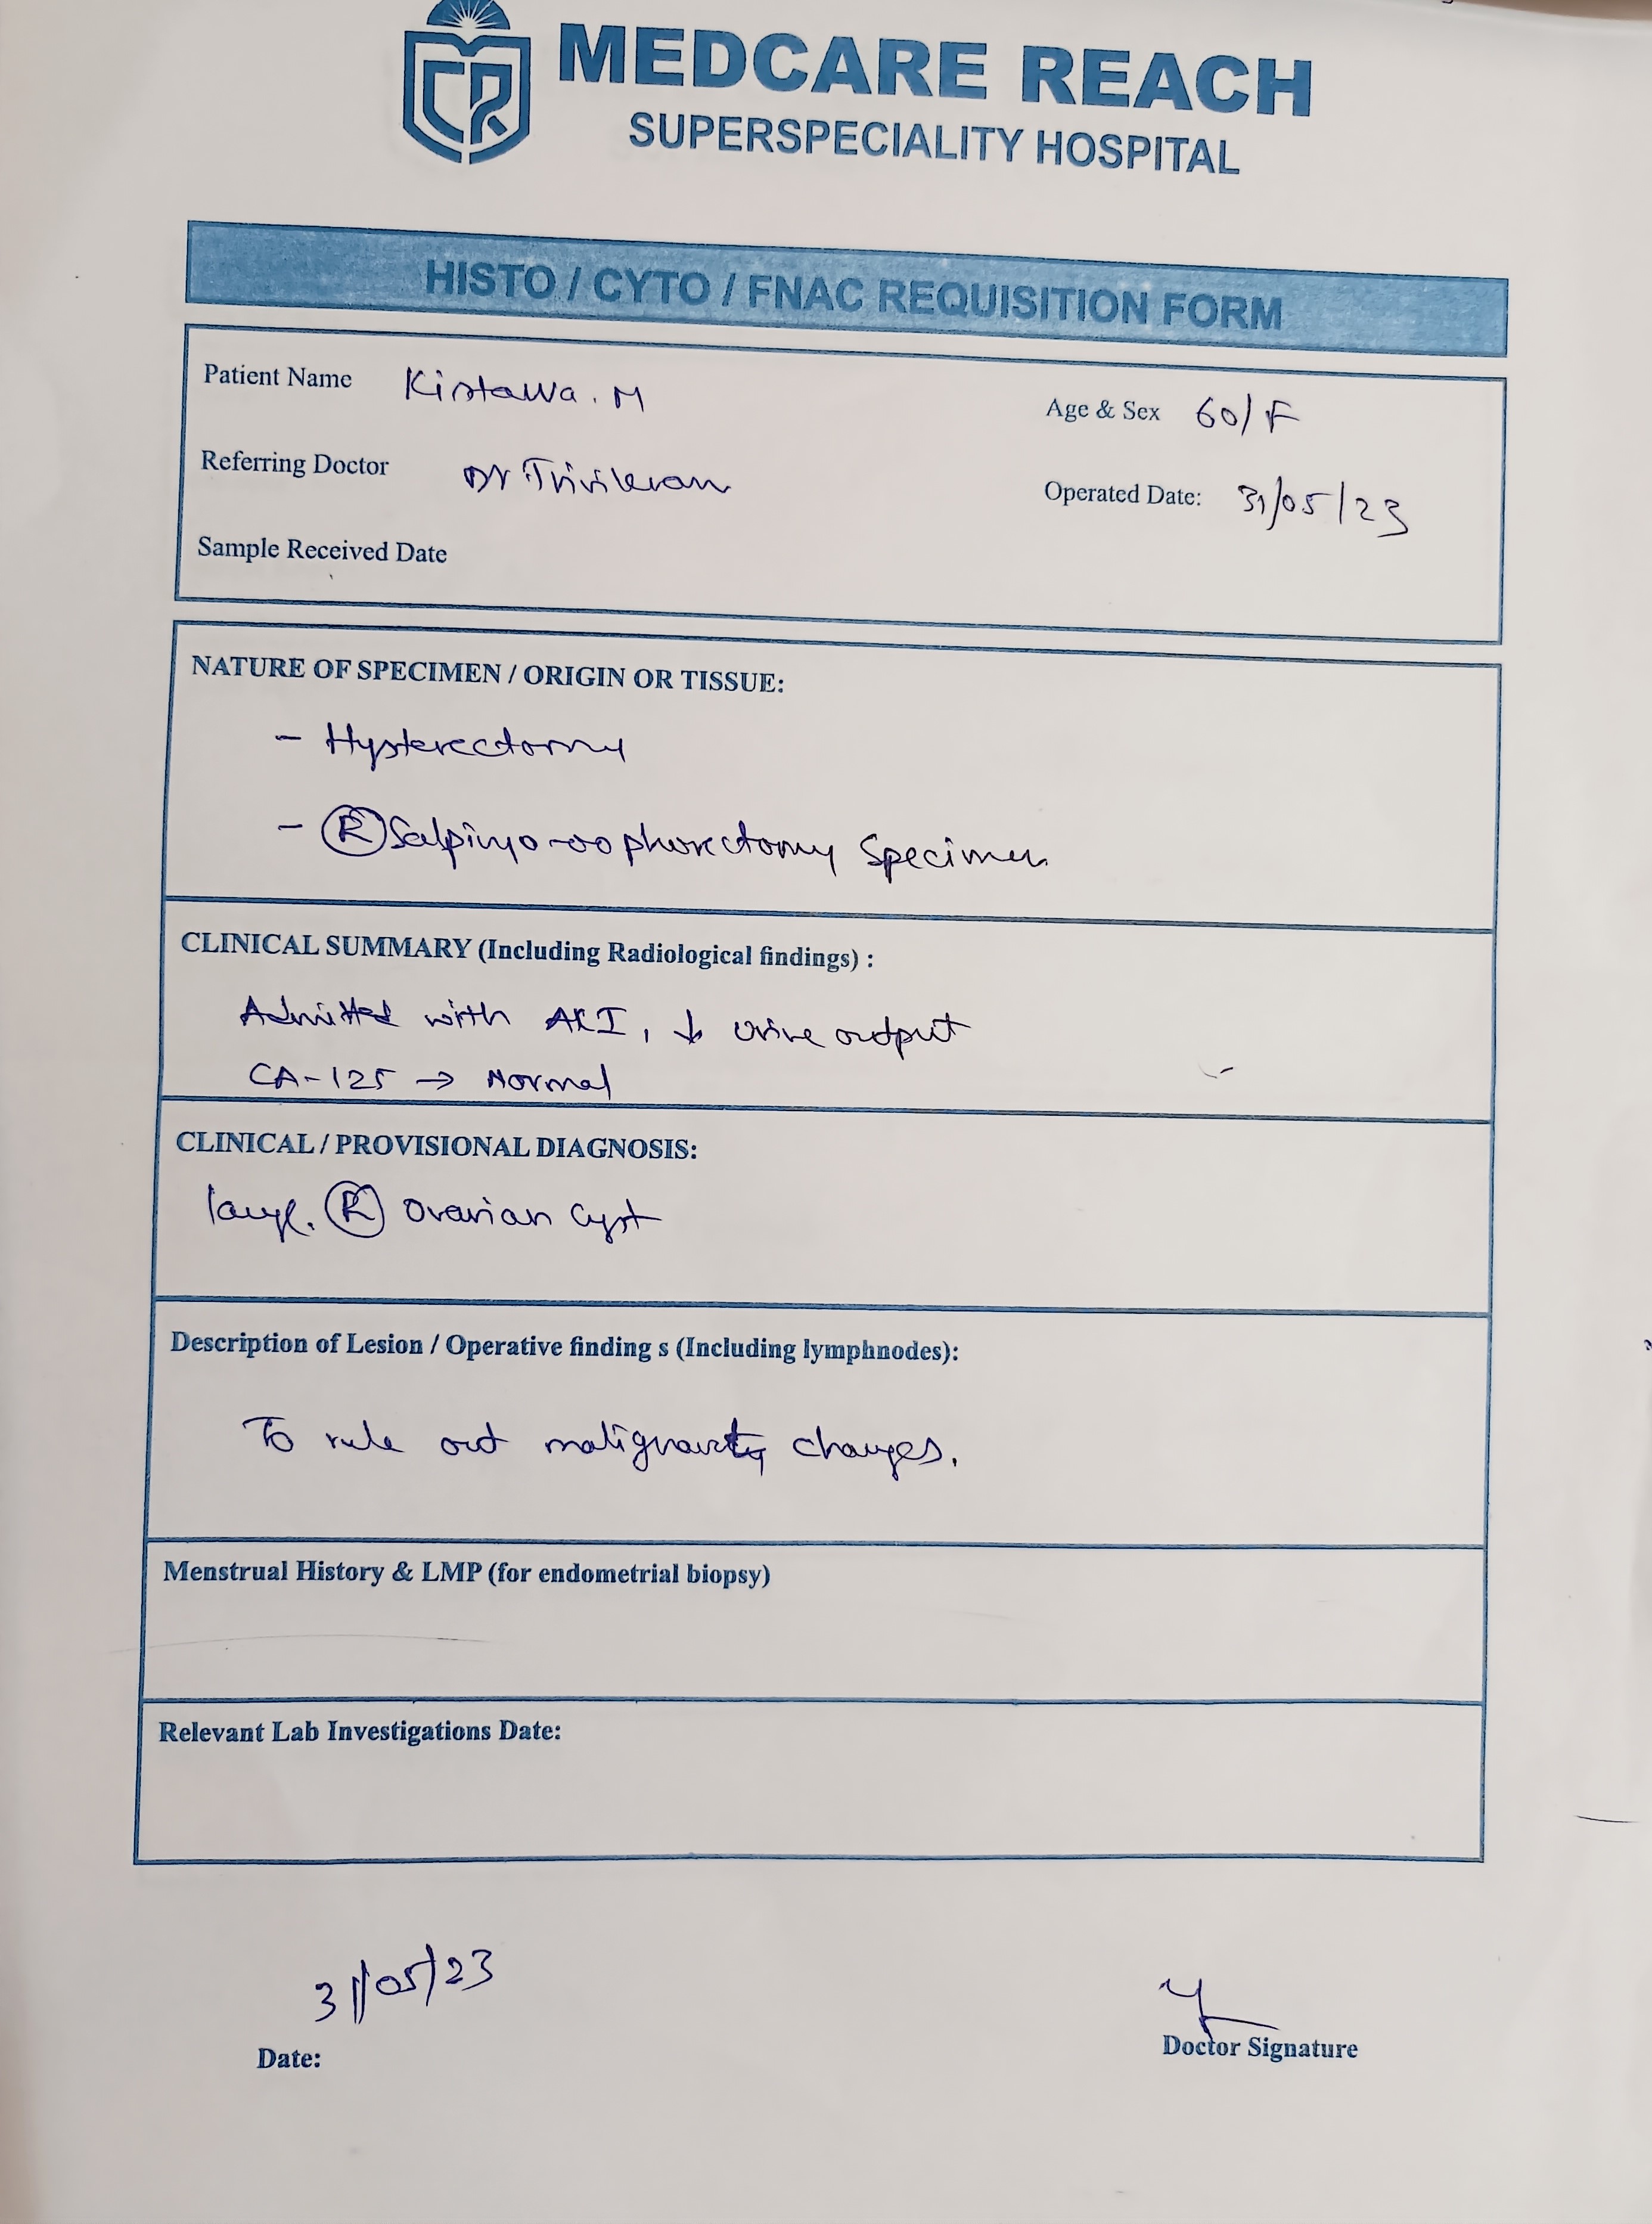 CR
MEDCARE REACH
SUPERSPECIALITY HOSPITAL
HISTO / CYTO / FNAC REQUISITION FORM
Patient Name Kistawa. M
Age & Sex 60/F
Referring Doctor Dr
Operated Date: 31/05/23
Sample Received Date
NATURE OF SPECIMEN / ORIGIN OR TISSUE:
- Hysterectomy
- (R) Salpingo-oophorectomy Specimen
CLINICAL SUMMARY (Including Radiological findings) :
Admitted with AKI, ↓ urine output
CA-125 → Normal
CLINICAL / PROVISIONAL DIAGNOSIS:
large (R) Ovarian Cyst
Description of Lesion / Operative finding s (Including lymphnodes):
To rule out malignanty changes.
Menstrual History & LMP (for endometrial biopsy)
Relevant Lab Investigations Date:
31/05/23
Date:
Doctor Signature